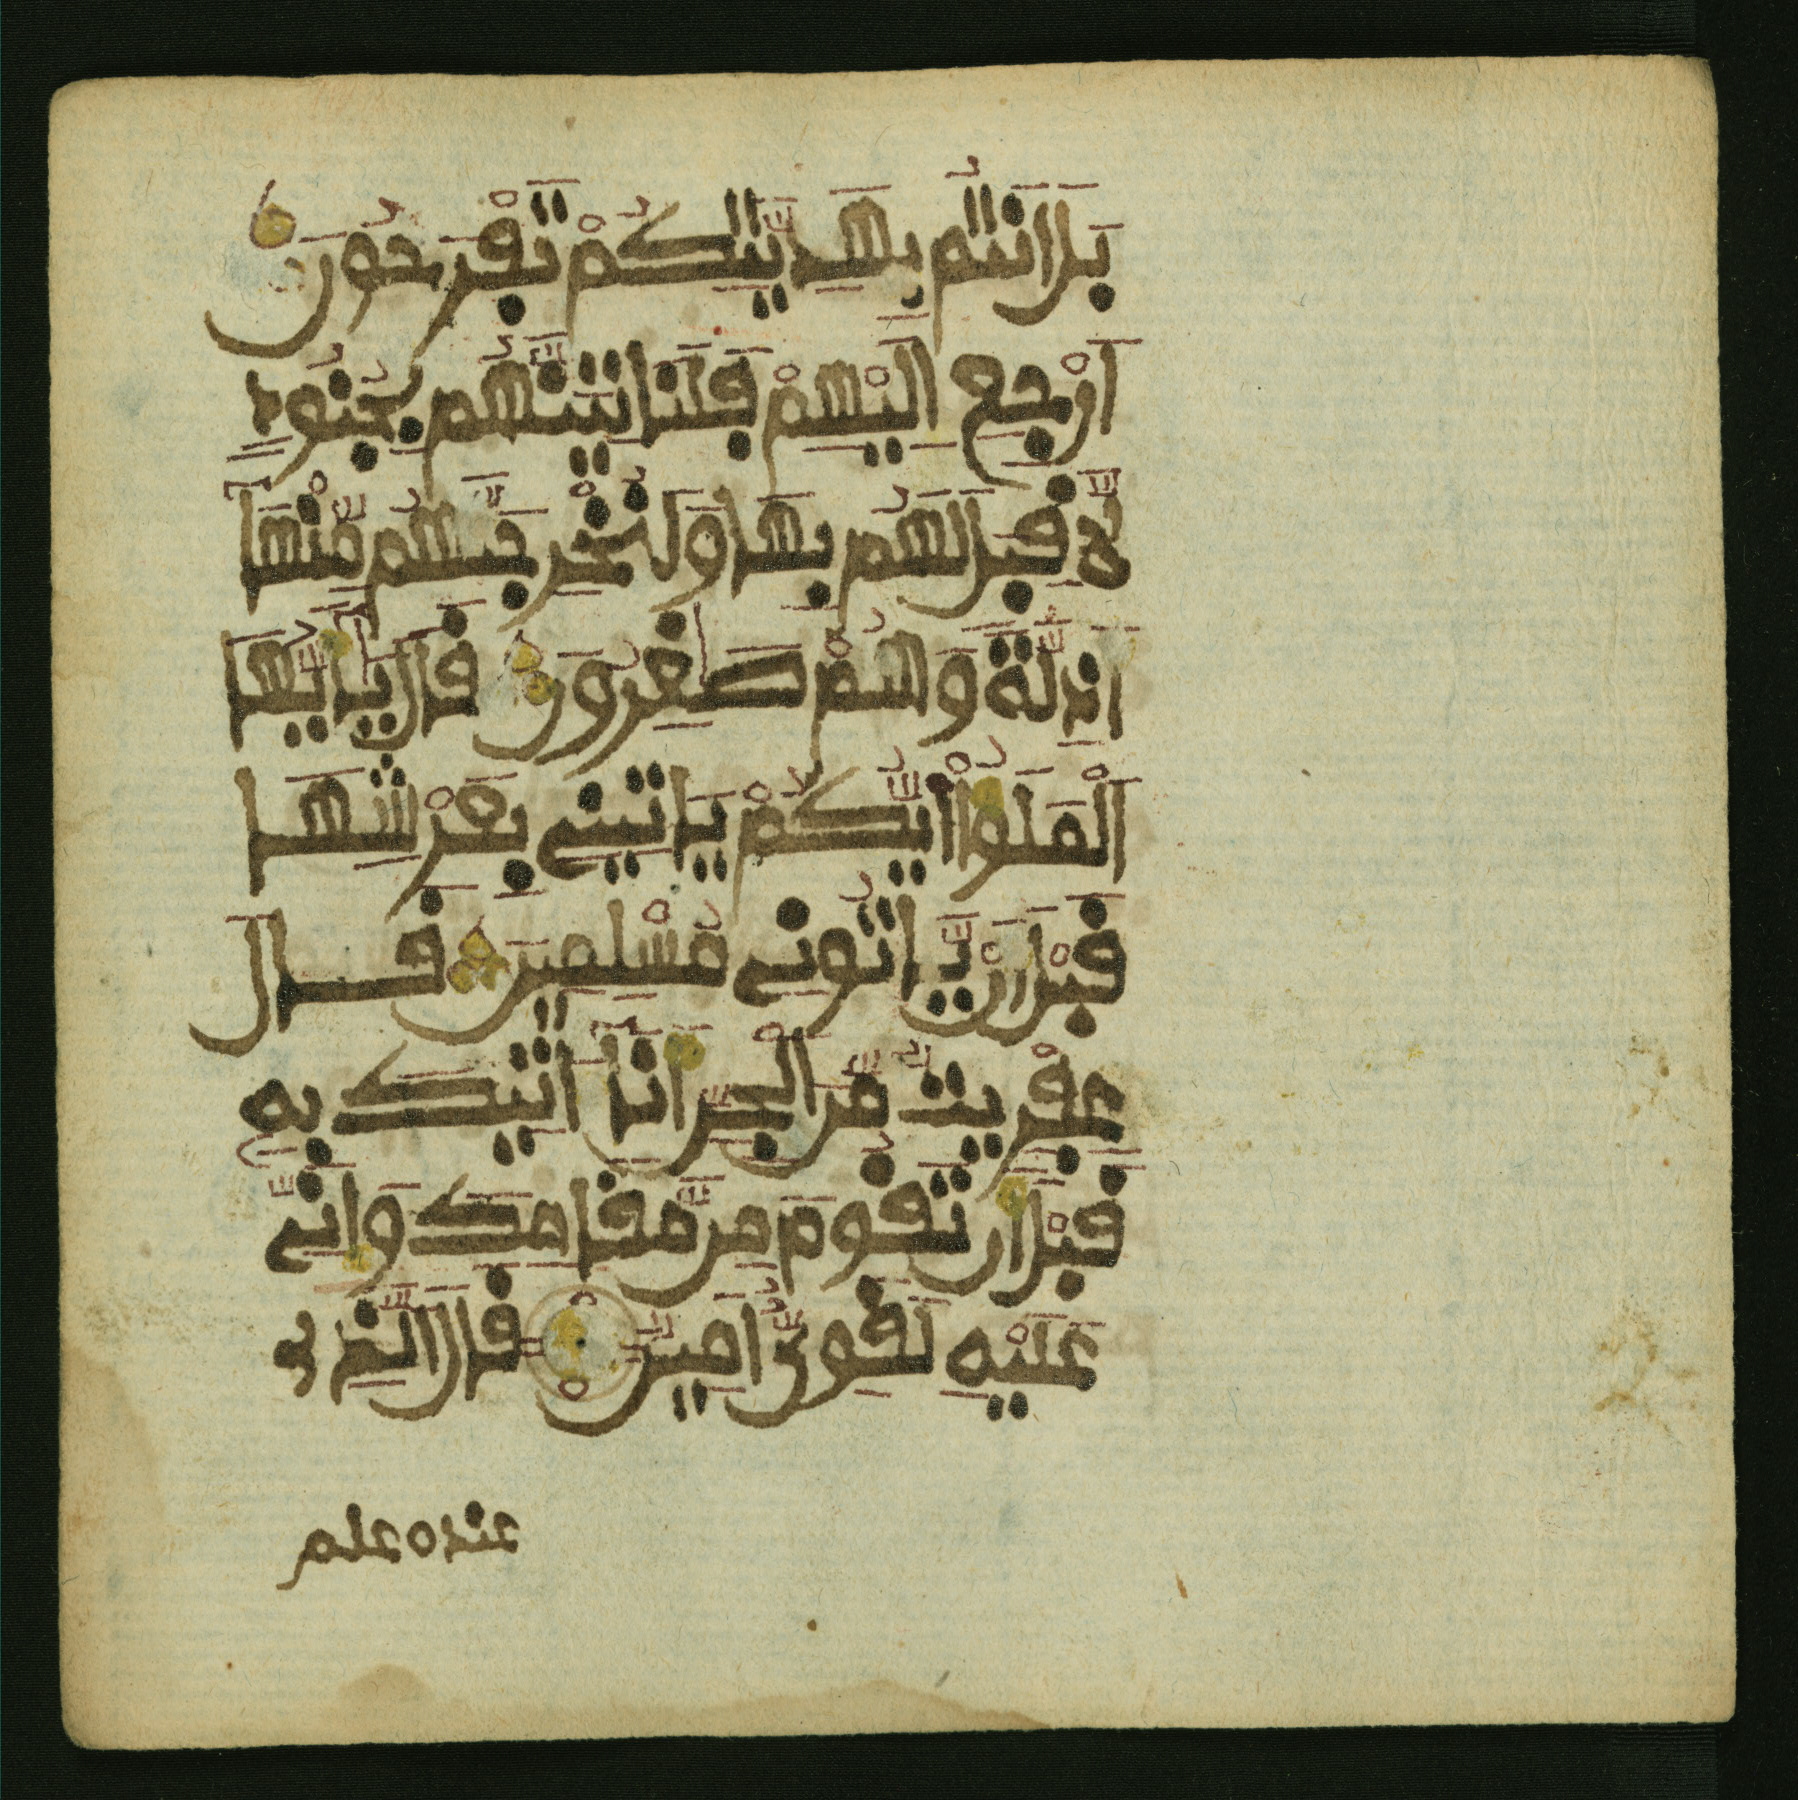 بَلَ اَنتُم بِهَدِيَّتِكُمْ تَفْرَحُونَ
اَرْجِعِ اِلَيْهِمْ فَلَنَاتِيَنَّهُم بِجُنُودٍ
لَّا قِبَلَ لَهُم بِهَا وَلَنُخْرِجَنَّهُم مِّنْهَا
أَذِلَّةً وَهُمْ صَٰغِرُونَ قَالَ يَٰأَيُّهَا
اَلْمَلَؤُاْ أَيُّكُمْ يَاتِينِي بِعَرْشِهَا
قَبْلَ أَنْ يَّاتُونِي مُسْلِمِينَ قَالَ
عِفْرِيتٌ مِّنَ اَلْجِنِّ أَنَا ءَاتِيكَ بِهِ
قَبْلَ أَن تَقُومَ مِن مَّقَامِكَ وَإِنِّي
عَلَيْهِ لَقَوِيٌّ أَمِينٌ قَالَ اَلَّذِي
عنده علم